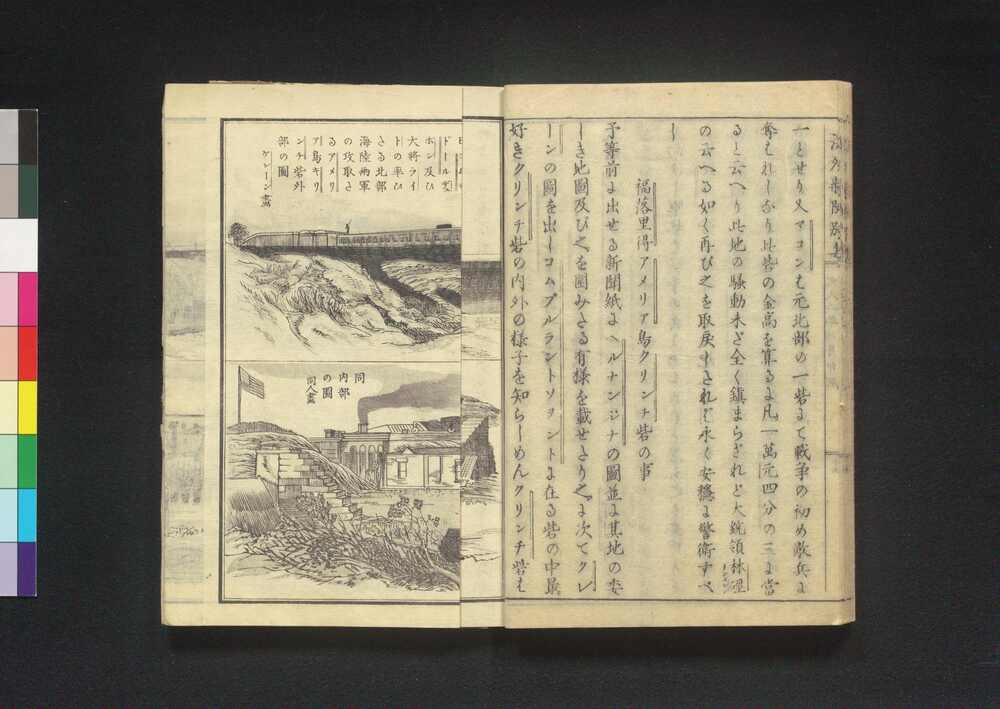 一とせり又マコンも元北部の一砦まて戦争の初め敵兵よ
奪もれしなり此砦の金高を算るよ凡一萬元四分の三よ當
ると云へり此地の騒動未ど全く鎮まらざれど大統領林硜
の云へる如く再び之を取戻しされバ永く安穏よ警衛すべ
し
福落里得アメリア島クリンチ砦の事
予等前よ出せる新聞紙よヘルナンジナの圖並よ其地の委
しき地圖及び之を圖みたる有様を載せたり之よ次てクレ
ーンの圖を出しコムブルラントソヲントよ在る砦の中最
好きクリンチ砦の内外の様子を知らしめんクリンチ砦も
ドール
ホン及ひ
大將ライ
トの率ひ
さる北部
海陸両軍
の攻取さ
るアメリ
ア島キリ
ンチ砦外
部の圖
ケレーン畫
同
内部
の圖
同人畫